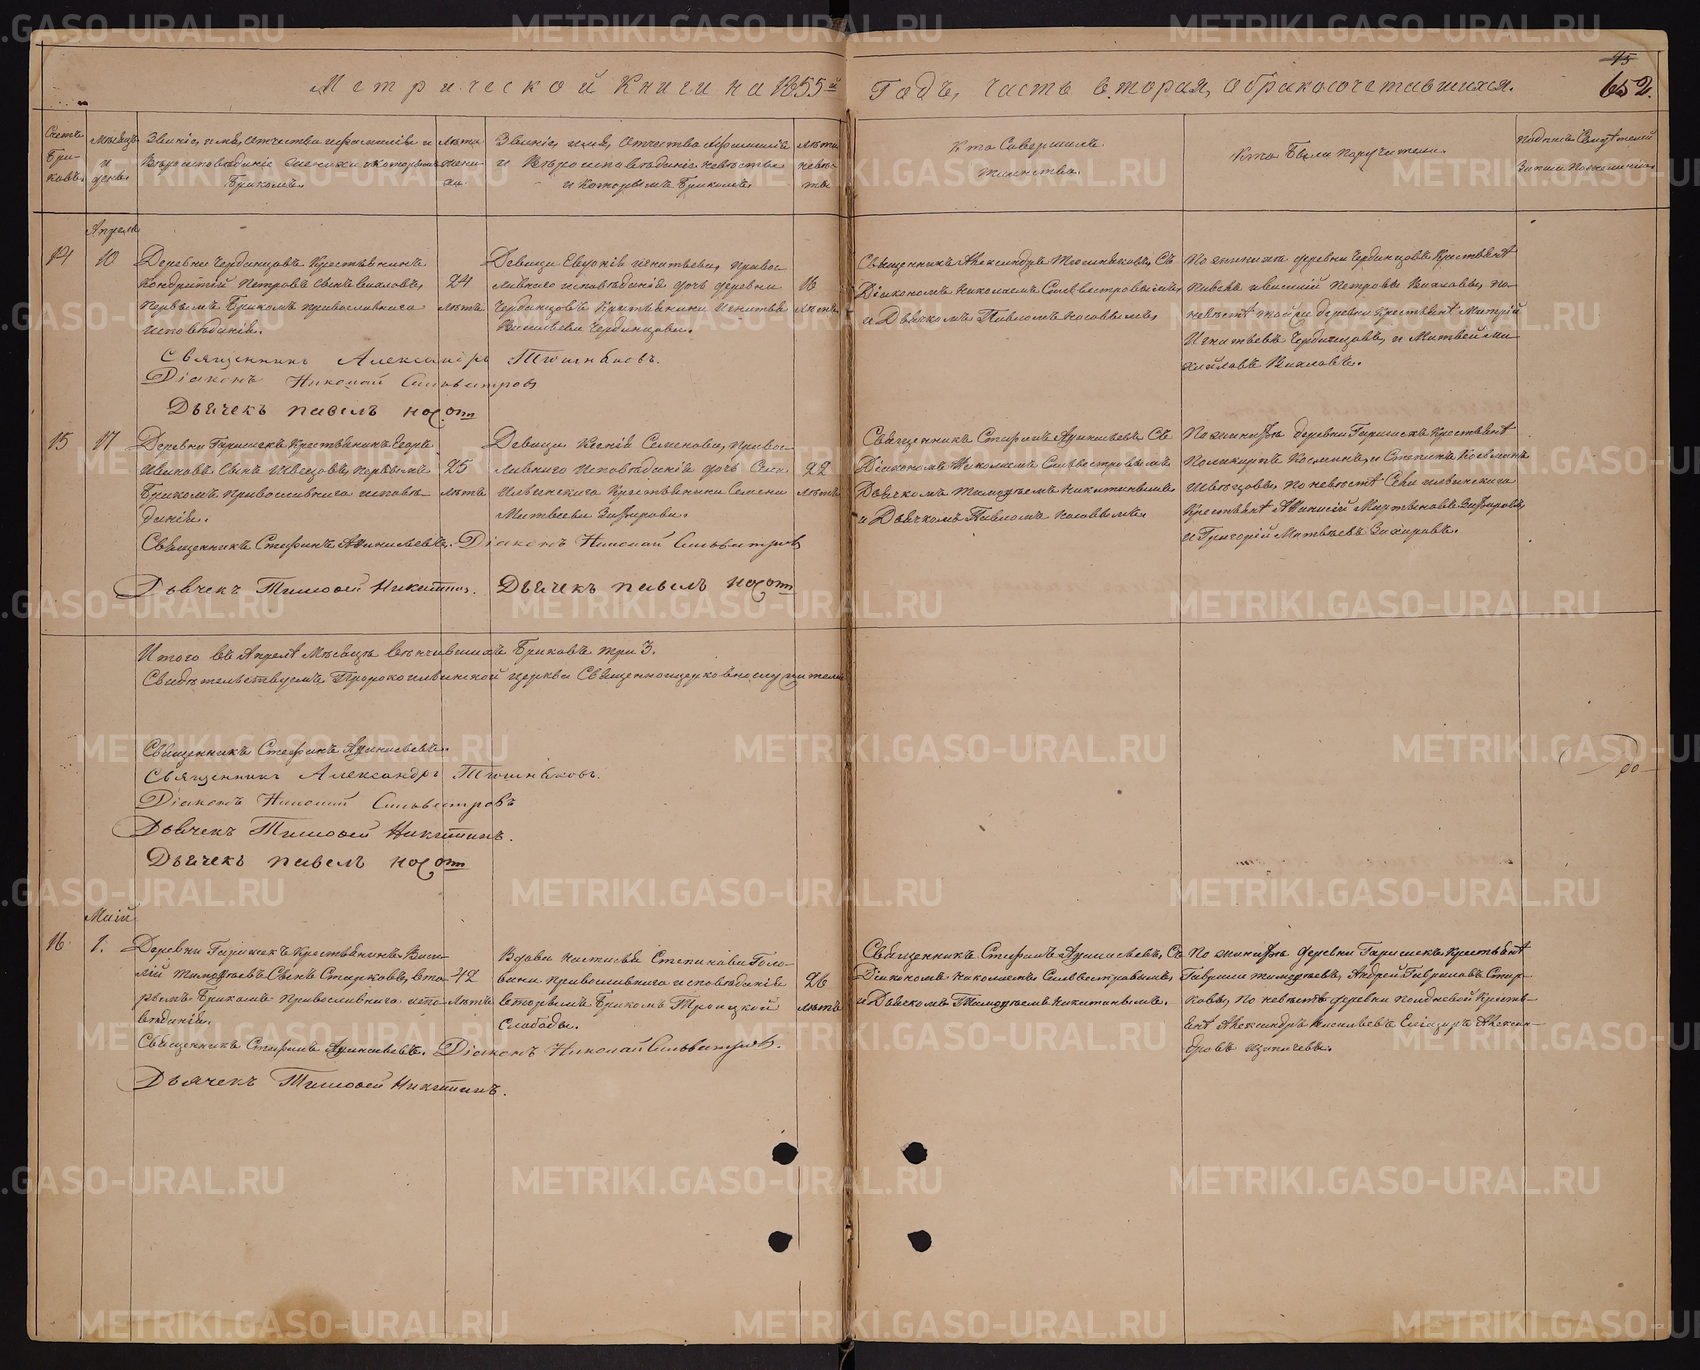 Метрической Книги на 1855й Годъ, часть вторая, о бракосочетавшихся.
45
652.
Счетъ Браковъ.
Мѣсяцъ и день.
Званіе, имя, отчество и фамилія и
Вѣроисповѣданіе жениха и которымъ
Бракомъ.
Лѣта жениха.
Званіе, имя, отчество и фамилія
и Вѣроисповѣданіе невѣсты
и которымъ Бракомъ.
Лѣта невѣсты
Кто Совершалъ
таинство.
Кто Были поручители.
Апреля
14
10
Деревни Чердынцовъ Крестьянинъ
Кондратій Петровъ сынъ
Первымъ Бракомъ православнаго
исповѣданія.
24
лѣтъ
Девица Евдокія Игнатьева, право-
славнаго исповѣданія дочь деревни
Чердынцовъ Крестьянина Игнатья
Васильева Чердынцова.
16
лѣтъ
Священникъ Александръ Тюшняковъ, Съ
Діакономъ Николаемъ Сильвестровымъ,
и Дьячкомъ Павломъ Носовымъ.
По женихѣ деревни Чердынцовъ Крестьянѣ
Петровы по
невѣстѣ той же деревни Крестьянѣ
Игнатьевъ Чердынцовъ, и Матвей Ми-
хайловъ
Священникъ Александръ Тюшняковъ.
Діаконъ Николай Сильвестровъ
Дьячекъ Павелъ Носовъ
15
17
Деревни Гаринскъ Крестьянинъ Егоръ
Ивановъ Сынъ Швецовъ, первымъ
Бракомъ православнаго исповѣ-
данія.
25
лѣтъ
Девица Ксенія Семенова, право-
славнаго исповѣданія дочь Села
Ильинскаго Крестьянина Семена
Матвеева Захарова.
22
лѣтъ
Священникъ Стефанъ Афанасьевъ Съ
Діакономъ Николаемъ Сильвестровымъ
Дьячкомъ Тимофеемъ Никитинымъ
и Дьячкомъ Павломъ Носовымъ.
По женихѣ деревни Гаринскъ Крестьянѣ
Поликарпъ Козминъ, и Степанъ Козьминъ
Швецовы, по невѣстѣ Села Ильинскаго
Крестьянѣ Афанасій Мартыновъ Захаровъ
и Григорій Матвѣевъ Захаровъ.
Священникъ Стефанъ Афанасьевъ. Діаконъ Николай Сильвестровъ
Дьячекъ Тимофей Никитинъ. Дьячекъ Павелъ Носовъ
Итого въ Апрелѣ Мѣсяцѣ венчавшихъ Браковъ три 3.
Свидѣтельствуемъ, Пророкоильинской церкви Священноцерковнослужители
Священникъ Стефанъ Афанасьевъ.
Священникъ Александръ Тюшняковъ.
Діаконъ Николай Сильвестровъ
Дьячекъ Тимофей Никитинъ.
Дьячекъ Павелъ Носовъ
Маій
16
1.
Деревни Гаринскъ Крестьянинъ Васи-
лій Тимофеевъ Сынъ Старковъ, вто-
рымъ Бракомъ православнаго испо-
вѣданія.
42
лѣтъ
Вдова Настасья Степанова Голо-
вина православнаго исповѣданія
вторымъ Бракомъ Троицкой
Слободы.
26
лѣтъ
Священникъ Стефанъ Афанасьевъ, Съ
Діакономъ Николаемъ Сильвестровымъ,
и Дьячкомъ Тимофеемъ Никитинымъ.
По женихѣ деревни Гаринскъ Крестьянѣ
Гаврило Тимофеевъ, Андрей Гавриловъ Стар-
ковы, по невѣстѣ деревни Полдневой Кресть-
янѣ Александръ Васильевъ Елизаръ Алексан-
дровъ
Священникъ Стефанъ Афанасьевъ. Діаконъ Николай Сильвестровъ.
Дьячекъ Тимофей Никитинъ.
METRIKI.GASO-URAL.RU